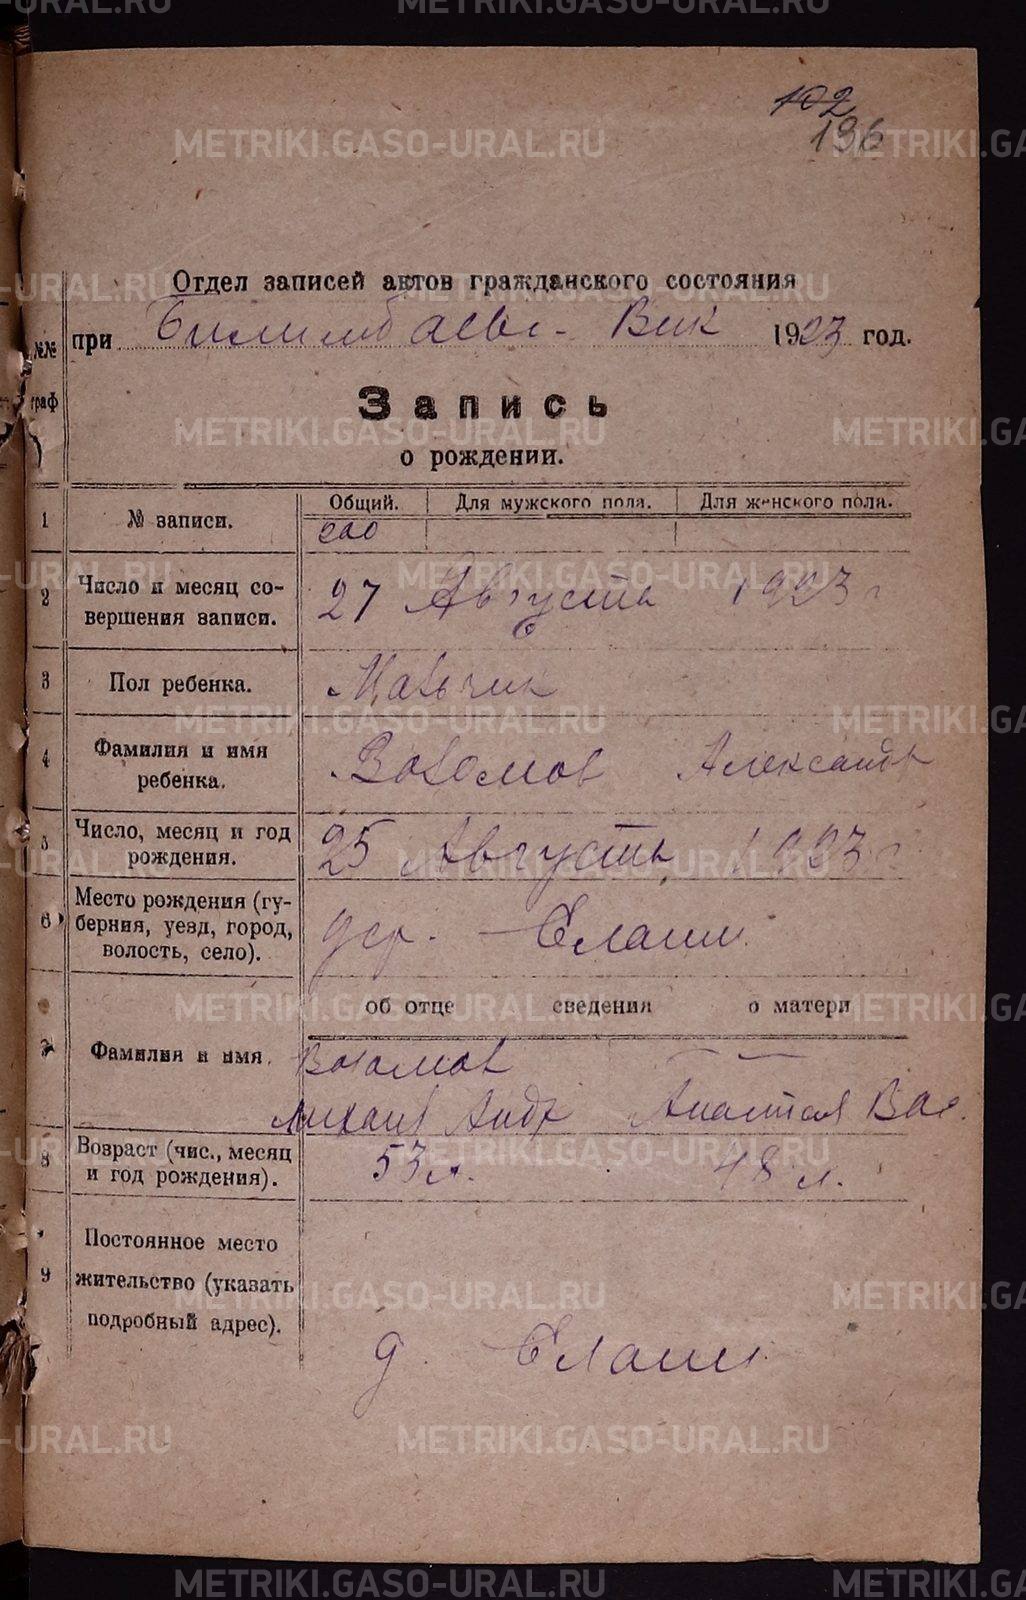 102
196
Отдел записей актов гражданского состояния
при Билимбаевс. Вик 1923 год.
№№ граф
Запись
о рождении.
Общий. Для мужского пола. Для женского пола.
1 № записи. 200
2 Число и месяц со-
вершения записи. 27 Августа 1923 г
3 Пол ребенка. Мальчик
4 Фамилия и имя
ребенка. Александр
5 Число, месяц и год
рождения. 25 Августа 1923 г
6 Место рождения (гу-
берния, уезд, город,
волость, село). дер. Елани
об отце сведения о матери
7 Фамилия и имя.
Михаил Андр Анастас Вас.
8 Возраст (чис., месяц
и год рождения). 53 л. 48 л.
9 Постоянное место
жительство (указать
подробный адрес).
д. Елани
METRIKI.GASO-URAL.RU